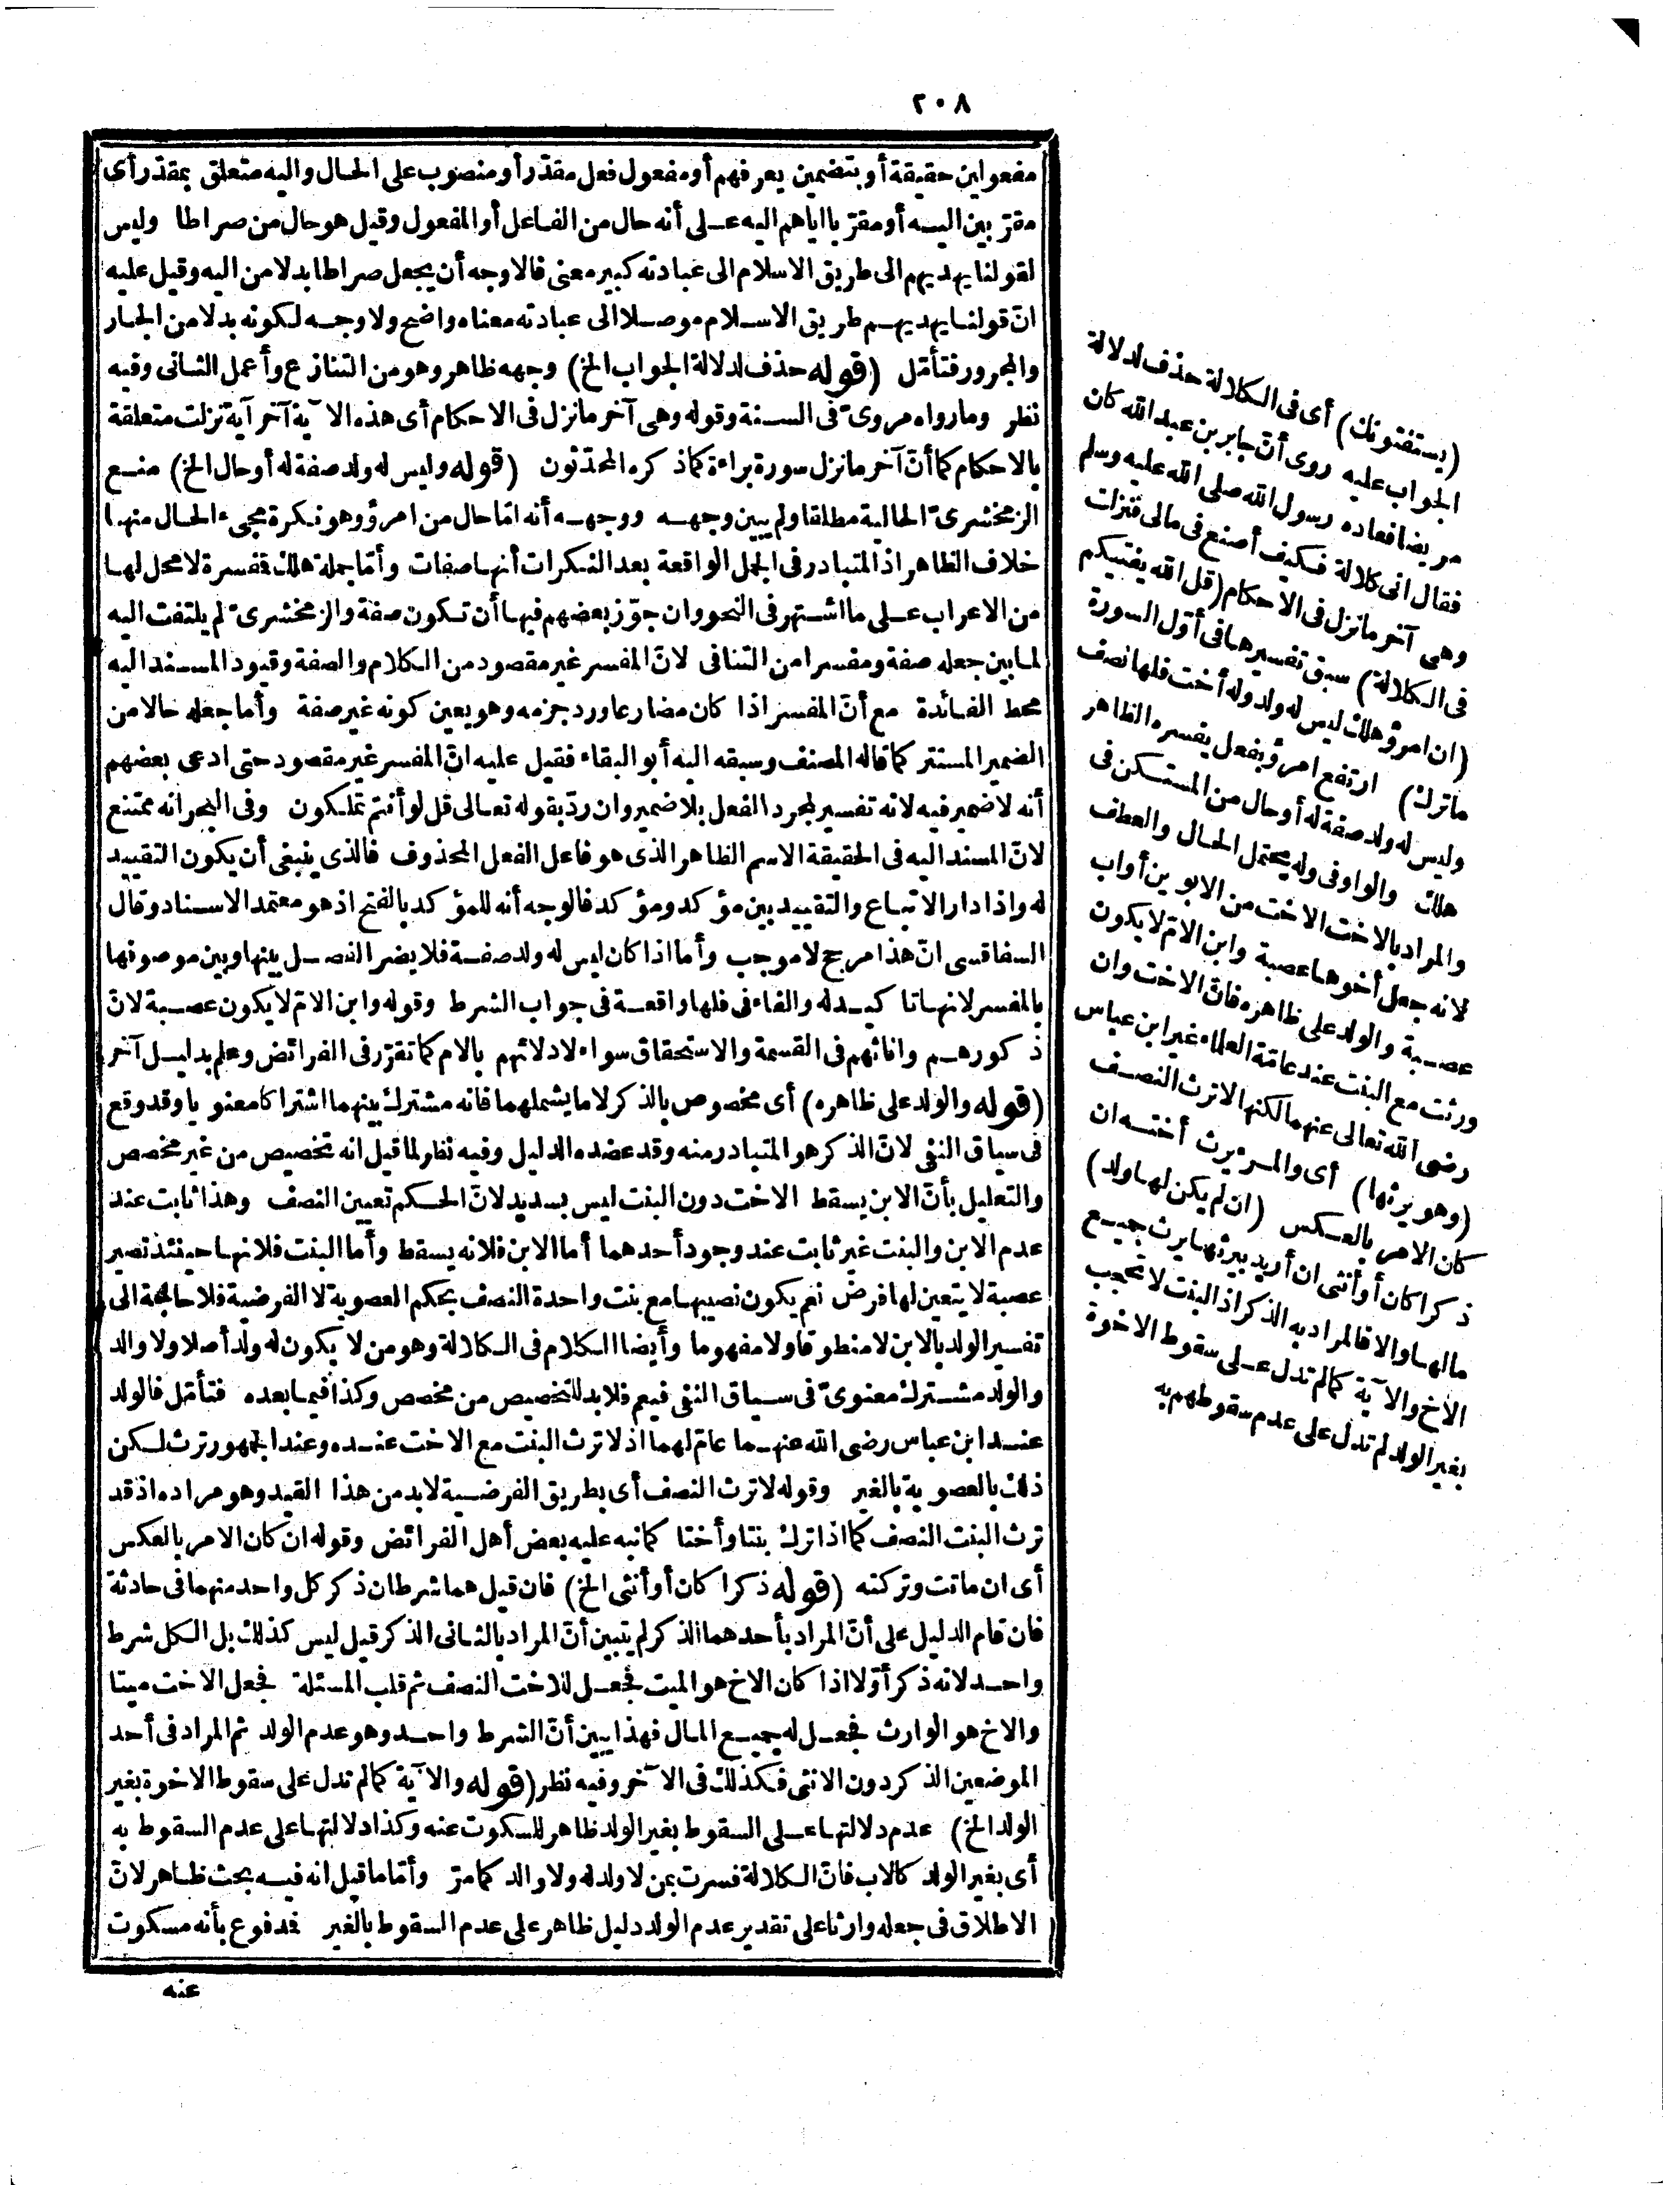 ٢٠٨
مفعولين حقيقة أو بتضمين يعرفهم أو مفعول فعل مقدّر أو منصوب على الحال واليه متعلق بمقدّر أى
مقرّبين اليه أو مقرّبا اياهم اليه على أنه حال من الفاعل أو المفعول وقيل هو حال من صراطا وليس
لقولنا يهديهم الى طريق الاسلام الى عبادته كبير معنى فالاوجه أن يجعل صراطا بدلا من اليه وقيل عليه
انّ قولنا يهديهم طريق الاسلام موصلا الى عبادته معناه واضح ولا وجه لكونه بدلا من الجار
والمجرور فتأمّل (قوله حذف لدلالة الجواب الخ) وجهه ظاهر وهو من التنازع وأعمل الثانى وفيه
نظر وما رواه مروىّ فى السنة وقوله وهى آخر ما نزل فى الاحكام أى هذه الآية آخر آية نزلت متعلقة
بالاحكام كما أنّ آخر ما نزل سورة براءة كما ذكره المحدّثون (قوله وليس له ولد صفة له أو حال الخ) منع
الزمخشرىّ الحالية مطلقا ولم يبين وجهه ووجهه أنه امّا حال من امرؤ وهو نكرة مجىء الحال منها
خلاف الظاهر اذ المتبادر فى الجمل الواقعة بعد النكرات أنها صفات وأمّا جملة هلك فمفسرة لا محل لها
من الاعراب على ما اشتهر فى النحو وان جوّز بعضهم فيها أن تكون صفة والزمخشرىّ لم يلتفت اليه
لما بين جعله صفة ومفسرا من التنافى لانّ المفسر غير مقصود من الكلام والصفة وقيود المسند اليه
محط الفائدة مع أنّ المفسر اذا كان مضارعا ورد جزمه وهو يعين كونه غير صفة وأما جعله حالا من
الضمير المستتر كما قاله المصنف وسبقه اليه أبو البقاء فقيل عليه انّ المفسر غير مقصود حتى ادعى بعضهم
أنه لا ضمير فيه لانه تفسير لمجرد الفعل بلا ضمير وان ردّ بقوله تعالى قل لو أنتم تملكون وفى البحر انه ممتنع
لانّ المسند اليه فى الحقيقة الاسم الظاهر الذى هو فاعل الفعل المحذوف فالذى ينبغى أن يكون التقييد
له واذا دار الاتباع والتقييد بين مؤكد ومؤكد فالوجه أنه للمؤكد بالفتح اذ هو معتمد الاسناد وقال
السفاقسى انّ هذا مرجح لا موجب وأما اذا كان ليس له ولد صفة فلا يضر الفصل بينها وبين موصوفها
بالمفسر لانها تاكيد له والفاء فى فلها واقعة فى جواب الشرط وقوله وابن الامّ لا يكون عصبة لانّ
ذكورهم واناثهم فى القسمة والاستحقاق سواء لادلائهم بالام كما تقرّر فى الفرائض وعلم بدليل آخر
(قوله والولد على ظاهره) أى مخصوص بالذكر لا ما يشملهما فانه مشترك بينهما اشتراكا معنويا وقد وقع
فى سياق النفى لانّ الذكر هو المتبادر منه وقد عضده الدليل وفيه نظر لما قيل انه تخصيص من غير مخصص
والتعليل بأنّ الابن يسقط الاخت دون البنت ليس بسديد لانّ الحكم تعيين النصف وهذا ثابت عند
عدم الابن والبنت غير ثابت عند وجود أحدهما أما الابن فلانه يسقط وأما البنت فلانها حينئذ تصير
عصبة لا يتعين لها فرض نعم يكون نصيبها مع بنت واحدة النصف بحكم العصوبة لا الفرضية فلا حاجة الى
تفسير الولد بالابن لا منطوقا ولا مفهوما وأيضا الكلام فى الكلالة وهو من لا يكون له ولد أصلا ولا والد
والولد مشترك معنوىّ فى سياق النفى فيعم فلا بد للتخصيص من مخصص وكذا فيما بعده فتأمّل فالولد
عند ابن عباس رضى الله عنهما عامّ لهما اذ لا ترث البنت مع الاخت عنده وعند الجمهور ترث لكن
ذلك بالعصوبة بالغير وقوله لا ترث النصف أى بطريق الفرضية لا بد من هذا القيد وهو مراده اذ قد
ترث البنت النصف كما اذا ترك بنتا وأختا كما نبه عليه بعض أهل الفرائض وقوله ان كان الامر بالعكس
أى ان ماتت وتركته (قوله ذكرا كان أو أنثى الخ) فان قيل هما شرطان ذكر كل واحد منهما فى حادثة
فان قام الدليل على أنّ المراد بأحدهما الذكر لم يتبين أنّ المراد بالثانى الذكر قيل ليس كذلك بل الكل شرط
واحد لانه ذكر أوّلا اذا كان الاخ هو الميت فجعل للاخت النصف ثم قلب المسئلة فجعل الاخت ميتا
والاخ هو الوارث فجعل له جميع المال فهذا يبين أنّ الشرط واحد وهو عدم الولد ثم المراد فى أحد
الموضعين الذكر دون الانثى فكذلك فى الآخر وفيه نظر (قوله والآية كما لم تدل على سقوط الاخوة بغير
الولد الخ) عدم دلالتها على السقوط بغير الولد ظاهر للسكوت عنه وكذا دلالتها على عدم السقوط به
أى بغير الولد كالاب فانّ الكلالة فسرت بمن لا ولد له ولا والد كما مرّ وأمّا ما قيل انه فيه بحث ظاهر لانّ
الاطلاق فى جعله وارثا على تقدير عدم الولد دليل ظاهر على عدم السقوط بالغير فمدفوع بأنه مسكوت
عنه
(يستفتونك) أى فى الكلالة حذف لدلالة
الجواب عليه روى أنّ جابر بن عبد الله كان
مريضا فعاده رسول الله صلى الله عليه وسلم
فقال انى كلالة فكيف أصنع فى مالى فنزلت
وهى آخر ما نزل فى الاحكام (قل الله يفتيكم
فى الكلالة) سبق تفسيرها فى أوّل السورة
(ان امرؤ هلك ليس له ولد وله أخت فلها نصف
ما ترك) ارتفع امرؤ بفعل يفسره الظاهر
وليس له ولد صفة له أو حال من المستكن فى
هلك والواو فى وله يحتمل الحال والعطف
والمراد بالاخت الاخت من الابوين أو اب
لانه جعل أخوها عصبة وابن الامّ لا يكون
عصبة والولد على ظاهره فانّ الاخت وان
ورثت مع البنت عند عامّة العلماء غير ابن عباس
رضى الله تعالى عنهما لكنها لا ترث النصف
(وهو يرثها) أى والمرء يرث أخته ان
كان الامر بالعكس (ان لم يكن لها ولد)
ذكرا كان أو أنثى ان أريد بيرثها يرث جميع
مالها والا فالمراد به الذكر اذ البنت لا تحجب
الاخ والآية كما لم تدل على سقوط الاخوة
بغير الولد لم تدل على عدم سقوطهم به